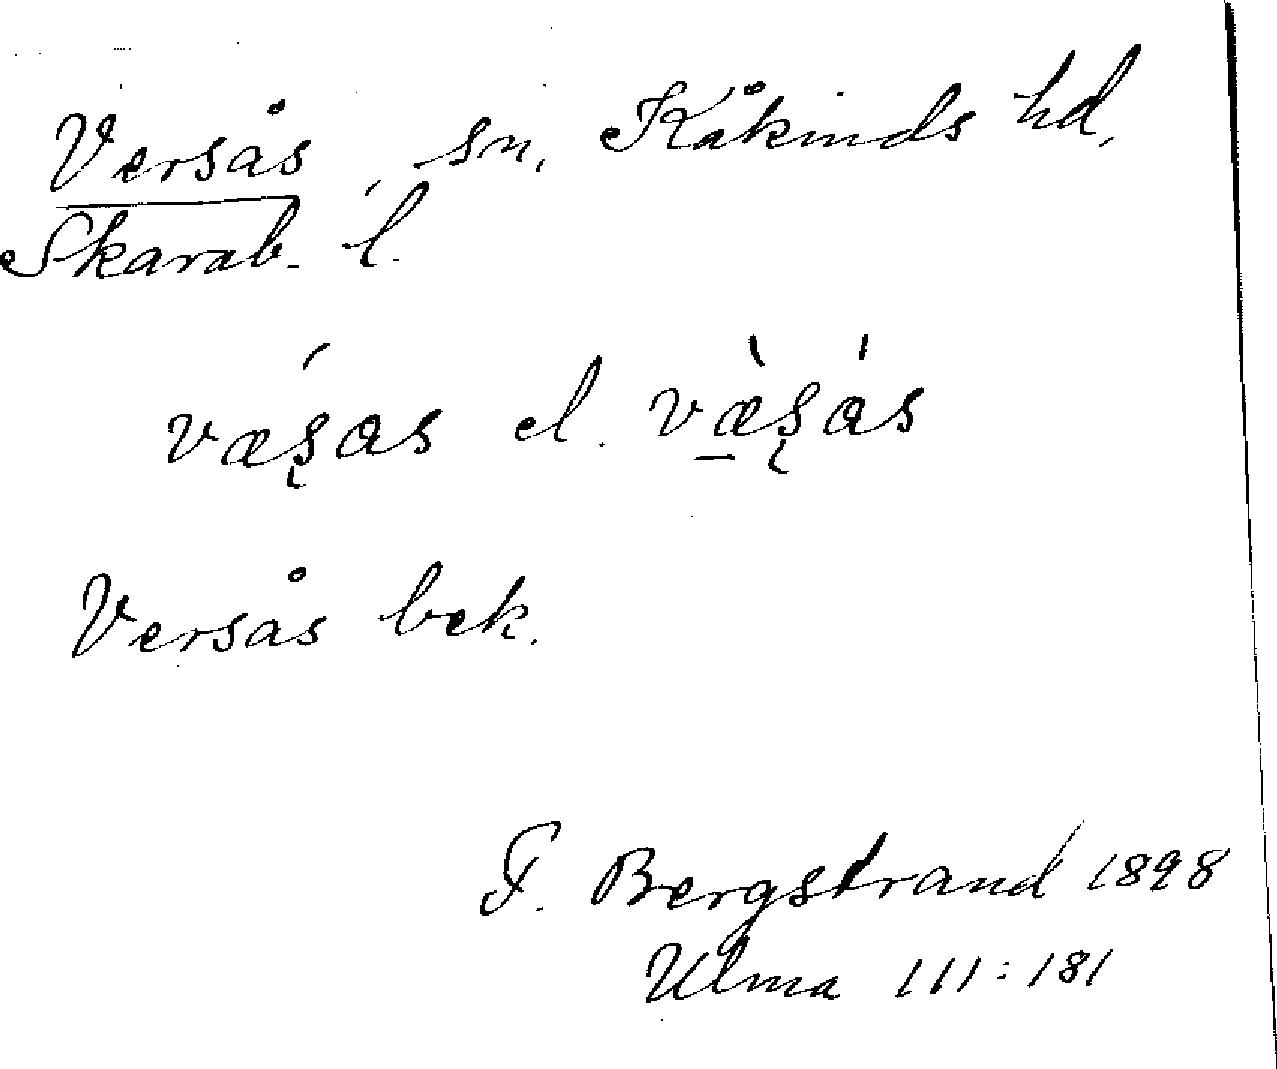 Versås, sn, Kåkinds hd,
Skarab. l.
vǽʂas el. væ̱̀ʂás
Versås bek.
F. Bergstrand 1898
Ulma 111:181